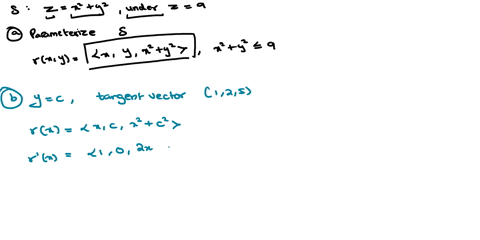 S: z = x² + y², under z = 9
(a) Parameterize S
r(x,y) = <x, y, x²+y²>, x²+y² ≤ 9
(b) y = c, tangent vector (1,2,5)
r(x) = <x, c, x²+c²>
r'(x) = <1, 0, 2x